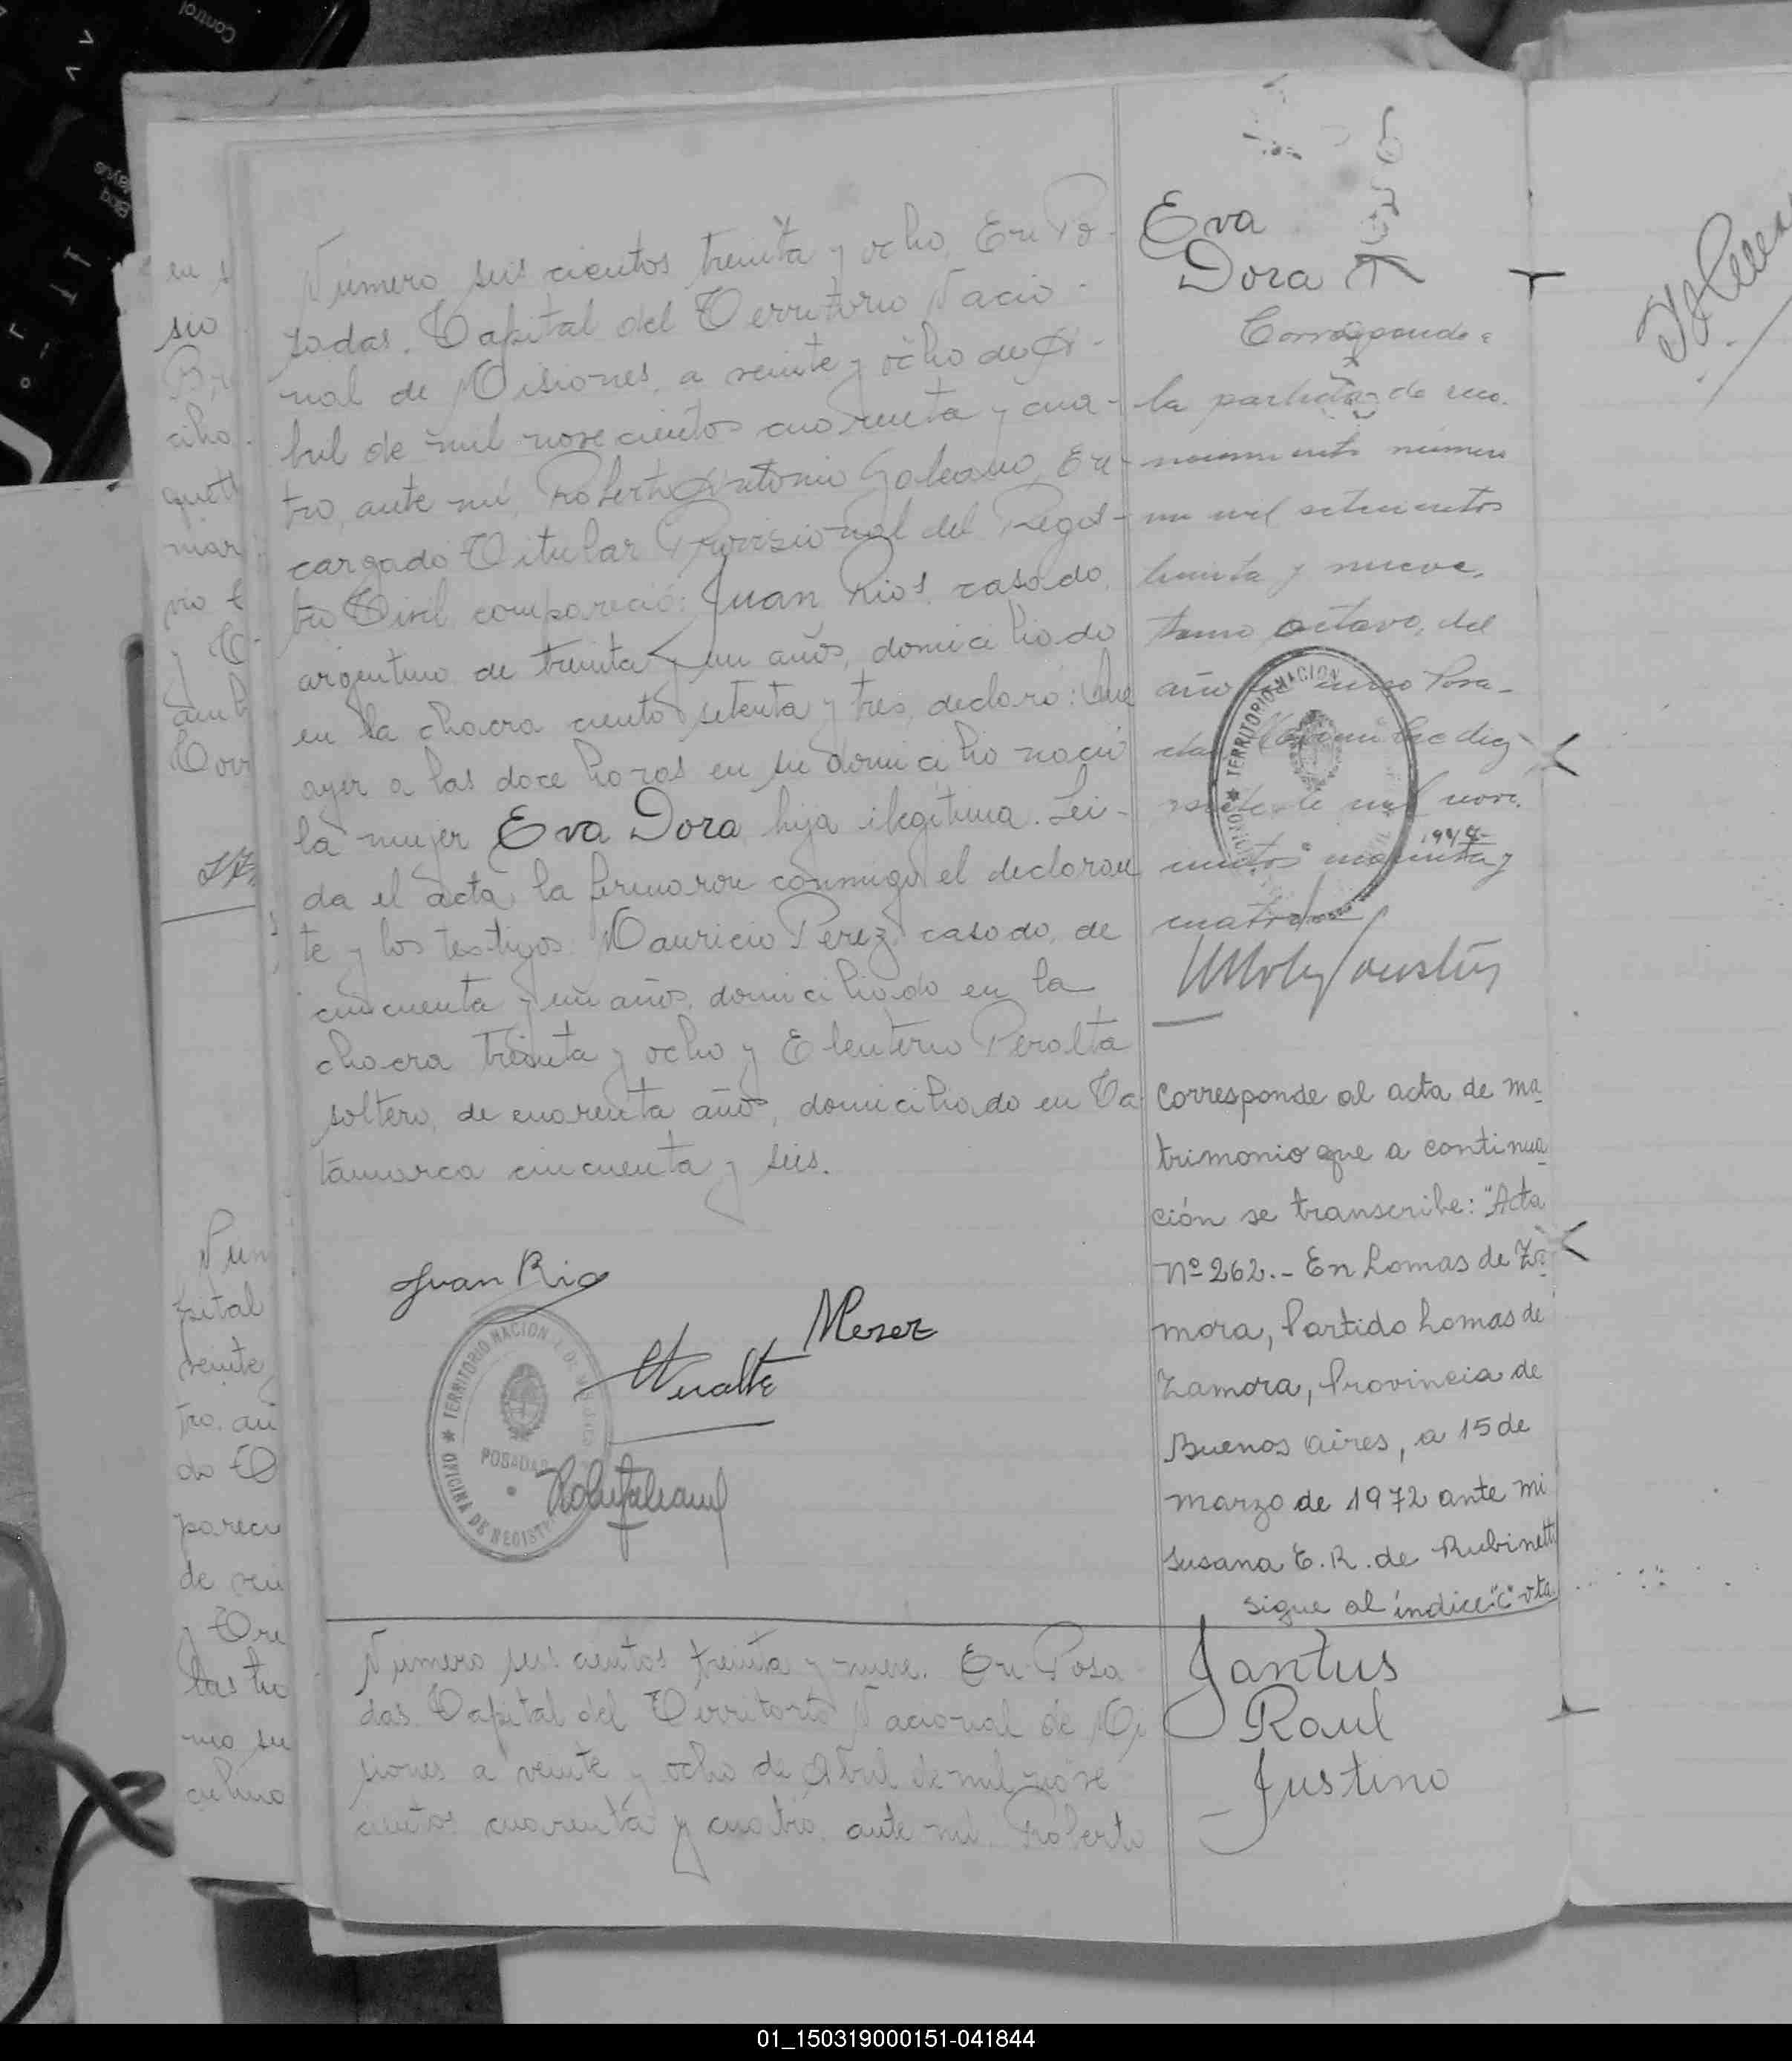 Número seis cientos treinta y ocho, En Po-
sadas, Capital del Territorio Nacio-
nal de Misiones, a veinte y ocho de A-
bril de mil nove cientos cuarenta y cua-
tro, ante mí, Roberto Antonio Galeano, En-
cargado Titular Provisional del Regis-
tro Civil compareció: Juan Rios, casado,
argentino de treinta y un años, domiciliado
en la chacra ciento setenta y tres, declaro: Que
ayer a las doce horas en su domicilio nació
la mujer Eva Dora, hija ilegítima. Lei-
da el acta la firmaron conmigo el declaran
te y los testigos: Mauricio Perez, casado, de
cincuenta y un años, domiciliado en la
chacra treinta y ocho y Eleuterio Peralta
soltero, de cuarenta años, domiciliado en Ca
tamarca cincuenta y seis.
Juan Rio
TERRITORIO NACIONAL DE MISIONES
POSADAS
OFICINA DE REGISTRO
Eva
Dora
Corresponde a
la partida de reco-
nocimiento número
un mil setecientos
treinta y nueve,
tomo octavo, del
año en curso Posa-
das
de mil nove
1944
cientos cuarenta y
cuatro
TERRITORIO NACION
Corresponde al acta de ma
trimonio que a continua
ción se transcribe: "Acta
Nº 262.- En Lomas de Za
mora, Partido Lomas de
Zamora, Provincia de
Buenos Aires, a 15 de
marzo de 1972 ante mi
Susana E. R. de Rubinetti
sigue al índice "C" vta.
Número seis cientos treinta y nueve. En Posa
das Capital del Territorio Nacional de Mi
siones a veinte y ocho de Abril de mil nove
cientos cuarenta y cuatro, ante mí, Roberto
Jantus
Raul
Justino
01_150319000151-041844